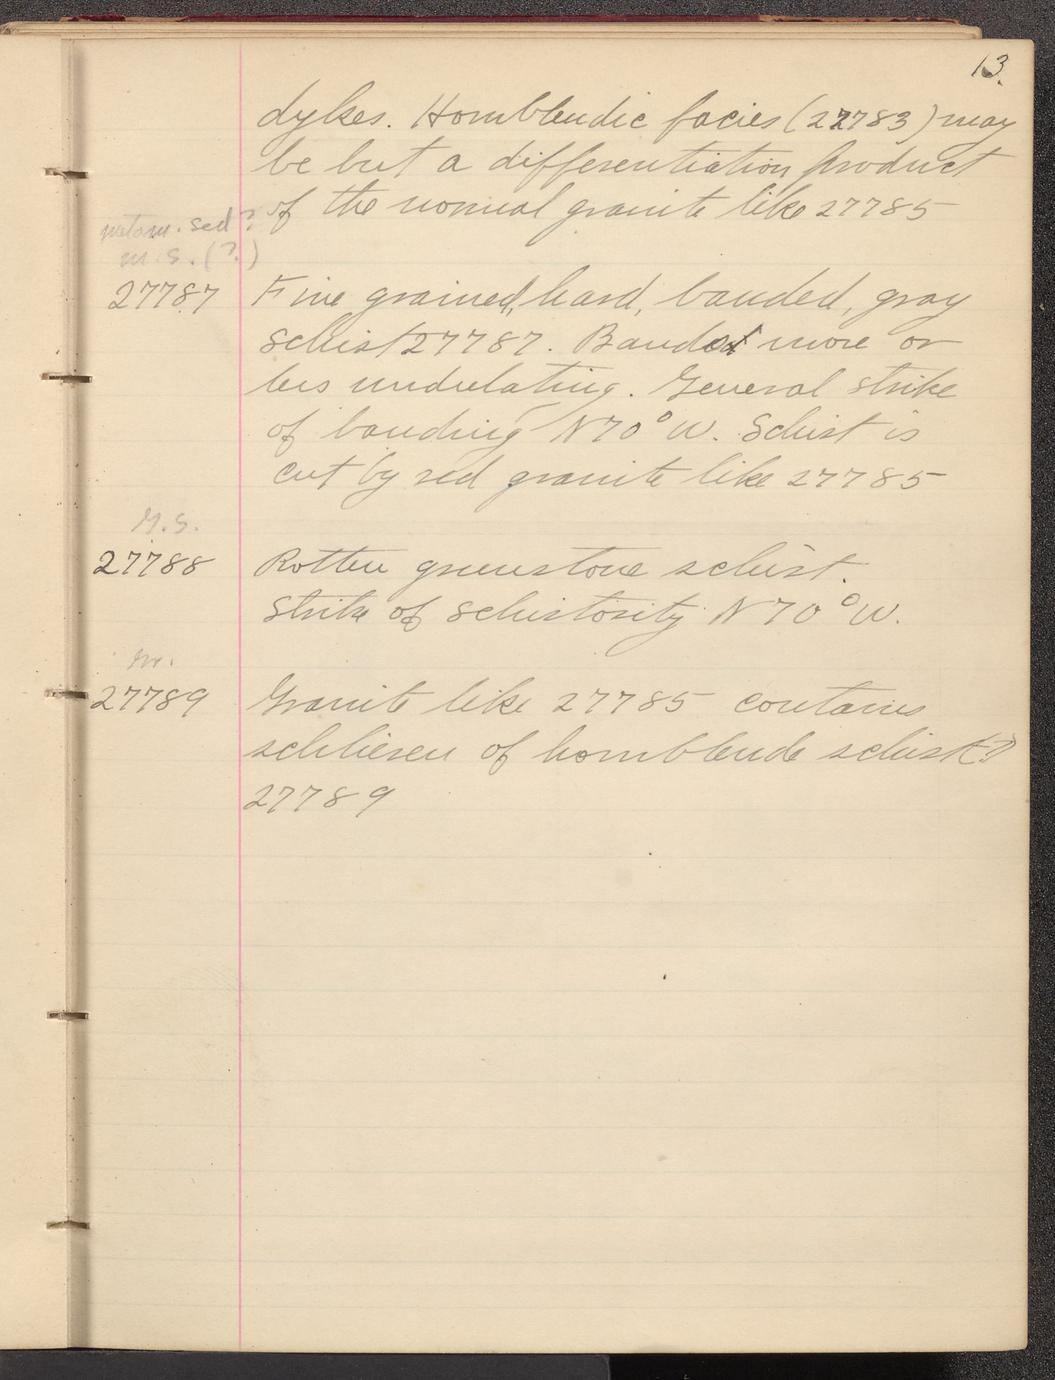 13.
dykes. Hornblendic facies (27783) may
be but a differentiation product
of the normal granite like 27785
metam. sed?
m.s. (?)
27787 Fine grained, hard, banded, gray
schist 27787. Bands more or
less undulating. General strike
of banding N70°W. Schist is
cut by red granite like 27785
G.S.
27788 Rotten greenstone schist.
Strike of schistosity N70°W.
27789 Granite like 27785 contains
schlieren of hornblende schist?
27789